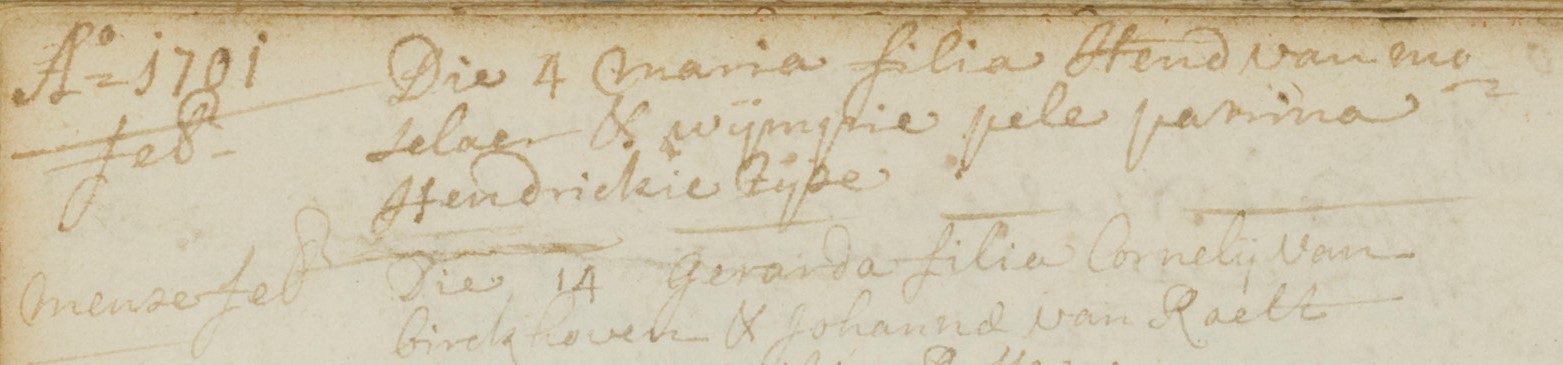 A° 1701 Die 4 maria filia Hend van mo
feb selaer & wijmpie pele patrina
Hendrickie Zijpe
mense feb Die 14 Gerarda filia Cornelij van
birckhoven & Johanna van Raelt